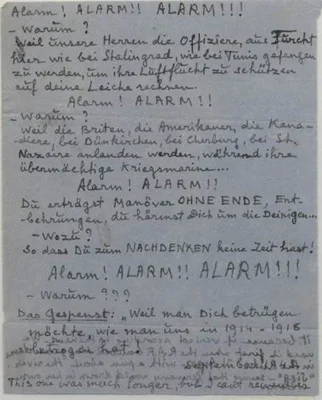 Alarm! ALARM!! ALARM!!!
– Warum?
Weil unsere Herren die Offiziere, aus Furcht
hier wie bei Stalingrad, wie bei Tunis gefangen
zu werden, um ihre Luftflucht zu schützen
auf deine Leiche rechnen.
Alarm! ALARM!!
– Warum?
Weil die Briten, die Amerikaner, die Kana-
diere, bei Dünkirchen, bei Cherburg, bei St.
Nazaire anlanden werden, während ihre
übermächtige Kriegsmarine...
Alarm! ALARM!!
Du erträgst Manöver OHNE ENDE, Ent-
behrungen, du härmst Dich um die Deinigen...
– Wozu?
So dass Du zum NACHDENKEN keine Zeit hast!
Alarm! ALARM!! ALARM!!!
– Warum ???
Das Gespenst: „Weil man Dich betrügen
möchte, wie man uns in 1914-1918
betrogen hat."
September 1943
This one was much longer, but I can't